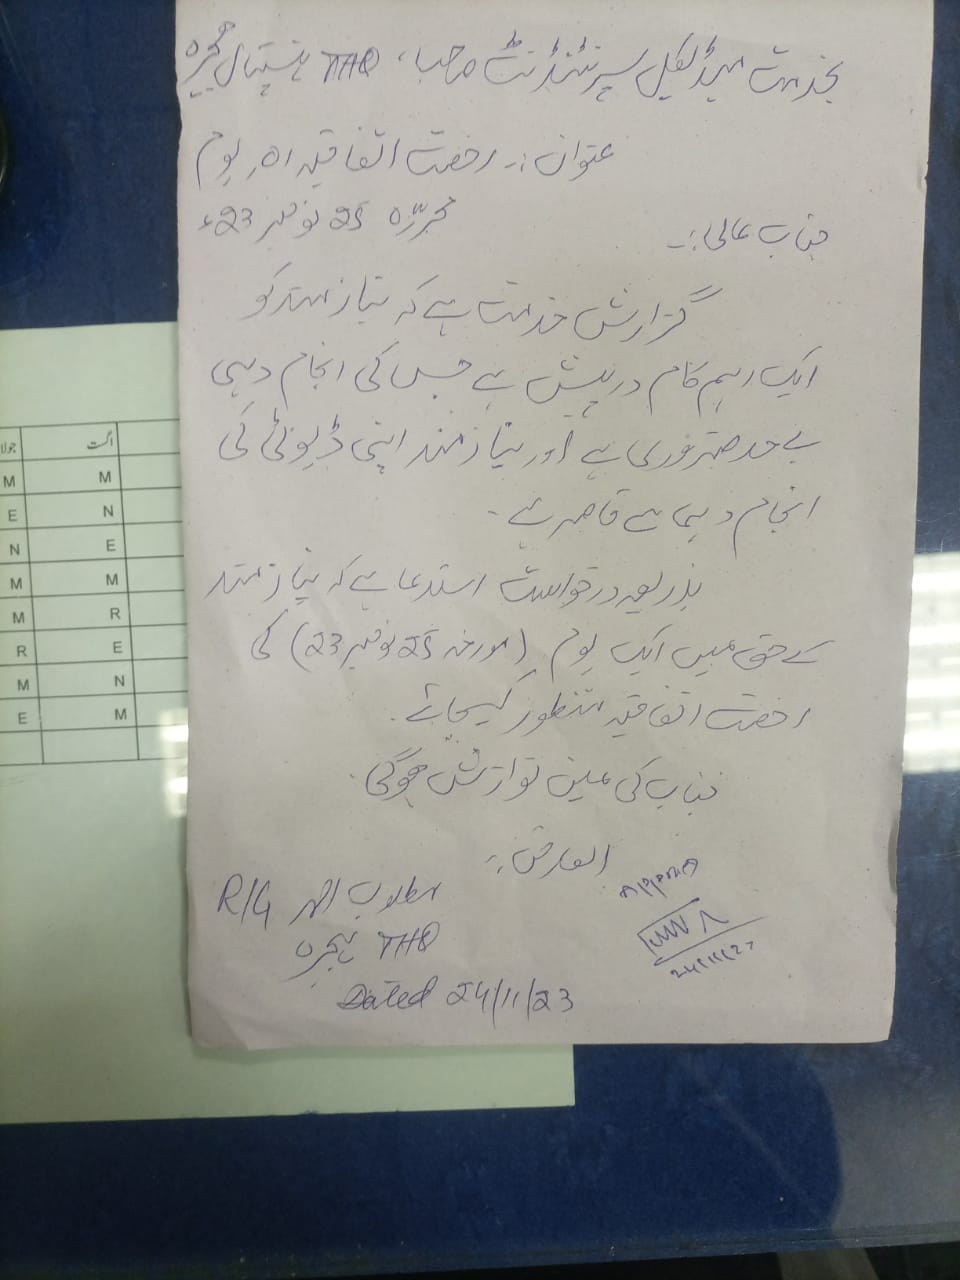 بخدمت میڈیکل سپرنٹنڈنٹ صاحب، THQ ہسپتال ہجیرہ
عنوان:۔ رخصت اتفاقیہ 01 یوم
محررہ 25 نومبر 23ء
جناب عالی:۔
گزارش خدمت ہے کہ نیازمند کو
ایک اہم کام درپیش ہے جس کی انجام دہی
بے حد ضروری ہے اور نیازمند اپنی ڈیوٹی کی
انجام دہی سے قاصر ہے۔
بذریعہ درخواست استدعا ہے کہ نیازمند
کے حق میں ایک یوم (مورخہ 25 نومبر 23) کی
رخصت اتفاقیہ منظور کیجائے۔
جناب کی عین نوازش ہوگی۔
العارض:۔
R/G
THQ ہجیرہ
Dated 24/11/23
Approved
جولا اگست
M M
E N
N E
M M
M R
R E
M N
E M